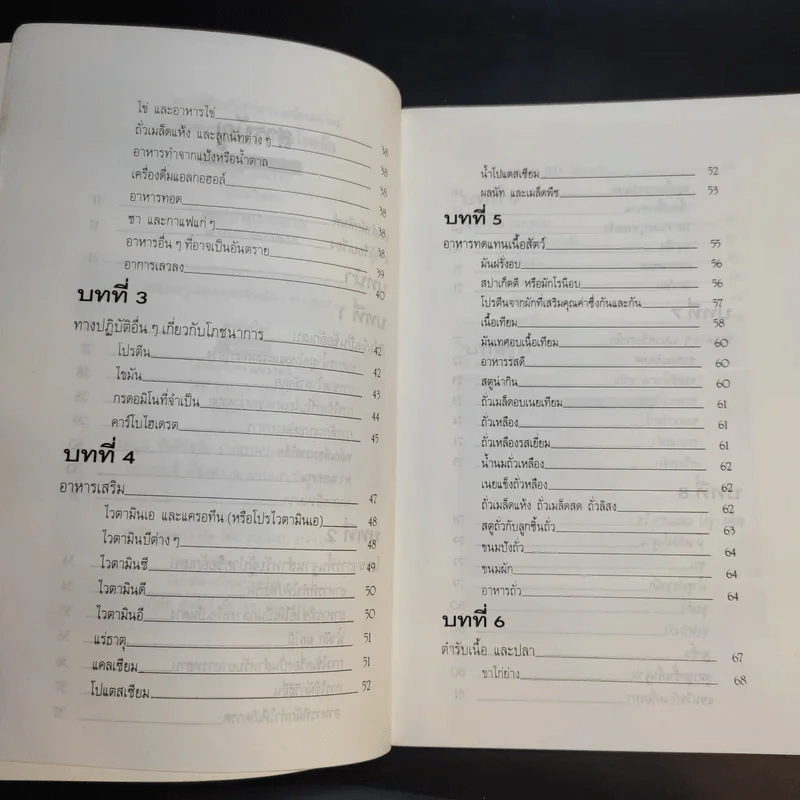 ไข่ และอาหารไข่ 38
ถั่วเมล็ดแห้ง และลูกนัทต่าง ๆ 38
อาหารทำจากแป้งหรือน้ำตาล 38
เครื่องดื่มแอลกอฮอล์ 38
อาหารทอด 38
ชา และกาแฟแก่ ๆ 38
อาหารอื่น ๆ ที่อาจเป็นอันตราย 39
อาการเลวลง 40
บทที่ 3
ทางปฏิบัติอื่น ๆ เกี่ยวกับโภชนาการ 42
โปรตีน 42
ไขมัน 43
กรดอมิโนที่จำเป็น 44
คาร์โบไฮเดรต 45
บทที่ 4
อาหารเสริม 47
ไวตามินเอ และแครอทีน (หรือโปรไวตามินเอ) 48
ไวตามินบีต่าง ๆ 48
ไวตามินซี 49
ไวตามินดี 50
ไวตามินอี 50
แร่ธาตุ 51
แคลเซียม 51
โปแตสเซียม 52
น้ำโปแตสเซียม 52
ผลนัท และเมล็ดพืช 53
บทที่ 5
อาหารทดแทนเนื้อสัตว์ 55
มันฝรั่งอบ 56
สปาเก็ตตี หรือมักโรนีอบ 56
โปรตีนจากผักที่เสริมคุณค่าซึ่งกันและกัน 57
เนื้อเทียม 58
มันเทศอบเนื้อเทียม 60
อาหารรสดี 60
สตูน่ากิน 60
ถั่วเมล็ดอบเนยเทียม 61
ถั่วเหลือง 61
ถั่วเหลืองรสเยี่ยม 61
น้ำนมถั่วเหลือง 62
เนยแข็งถั่วเหลือง 62
ถั่วเมล็ดแห้ง ถั่วเมล็ดสด ถั่วลิสง 62
สตูถั่วกับลูกชิ้นถั่ว 63
ขนมปังถั่ว 64
ขนมผัก 64
อาหารถั่ว 64
บทที่ 6
ตำรับเนื้อ และปลา 67
ขาไก่ย่าง 68